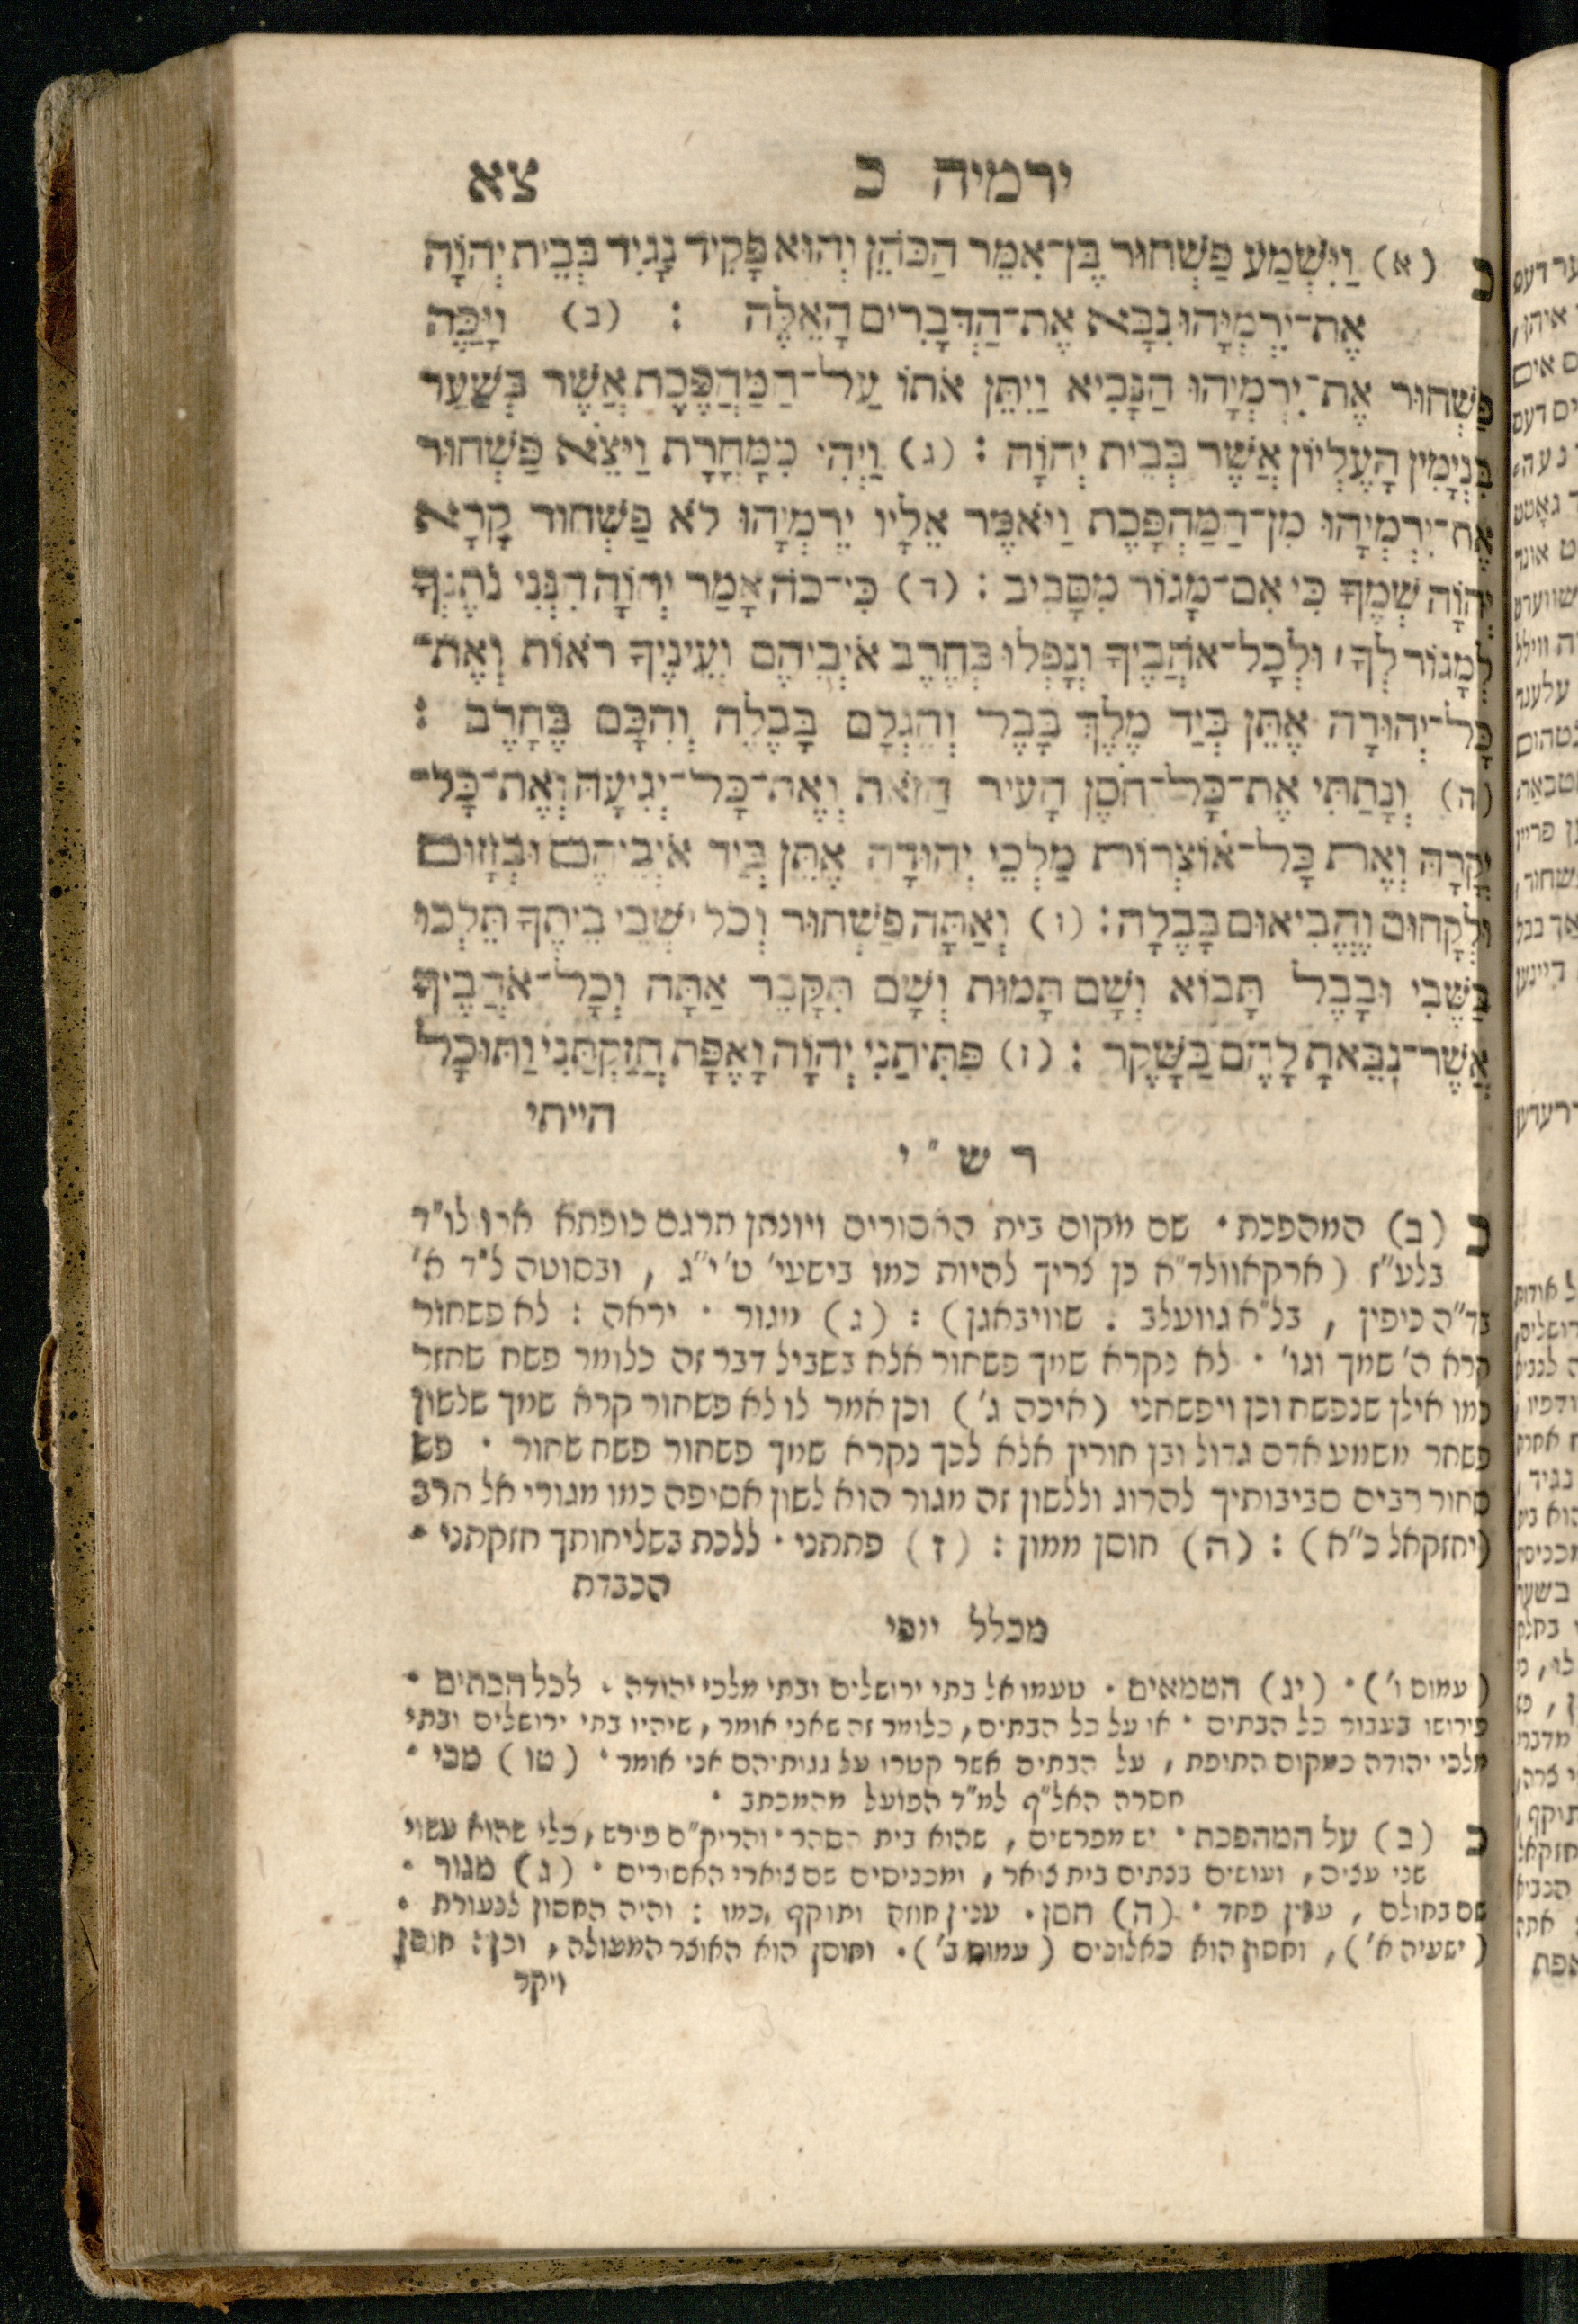 ירמיה כ צא
כ (א) וַיִּשְׁמַע פַּשְׁחוּר בֶּן־אִמֵּר הַכֹּהֵן וְהוּא פָּקִיד נָגִיד בְּבֵית יְהוָֹה
אֶת־יִרְמְיָהוּ נִבָּא אֶת־הַדְּבָרִים הָאֵלֶּה : (ב) וַיַּכֶּה
פַשְׁחוּר אֶת־יִרְמְיָהוּ הַנָּבִיא וַיִּתֵּן אֹתוֹ עַל־הַמַּהְפֶּכֶת אֲשֶׁר בְּשַׁעַר
בִּנְיָמִין הָעֶלְיוֹן אֲשֶׁר בְּבֵית יְהוָֹה : (ג) וַיְהִי מִמָּחֳרָת וַיֹּצֵא פַשְׁחוּר
אֶת־יִרְמְיָהוּ מִן־הַמַּהְפָּכֶת וַיֹּאמֶר אֵלָיו יִרְמְיָהוּ לֹא פַשְׁחוּר קָרָא
יְהוָֹה שְׁמֶךָ כִּי אִם־מָגוֹר מִסָּבִיב : (ד) כִּי־כֹה אָמַר יְהוָֹה הִנְנִי נֹתֶנְךָ
לְמָגוֹר לְךָ וּלְכָל־אֹהֲבֶיךָ וְנָפְלוּ בְּחֶרֶב אֹיְבֵיהֶם וְעֵינֶיךָ רֹאוֹת וְאֶת־
כָּל־יְהוּדָה אֶתֵּן בְּיַד מֶלֶךְ בָּבֶל וְהִגְלָם בָּבֶלָה וְהִכָּם בֶּחָרֶב :
(ה) וְנָתַתִּי אֶת־כָּל־חֹסֶן הָעִיר הַזֹּאת וְאֶת־כָּל־יְגִיעָהּ וְאֶת־כָּל־
יְקָרָהּ וְאֵת כָּל־אוֹצְרוֹת מַלְכֵי יְהוּדָה אֶתֵּן בְּיַד אֹיְבֵיהֶם וּבְזָזוּם
וּלְקָחוּם וֶהֱבִיאוּם בָּבֶלָה : (ו) וְאַתָּה פַשְׁחוּר וְכֹל יֹשְׁבֵי בֵיתֶךָ תֵּלְכוּ
בַּשֶּׁבִי וּבָבֶל תָּבוֹא וְשָׁם תָּמוּת וְשָׁם תִּקָּבֵר אַתָּה וְכָל־אֹהֲבֶיךָ
אֲשֶׁר־נִבֵּאתָ לָהֶם בַּשָּׁקֶר : (ז) פִּתִּיתַנִי יְהוָֹה וָאֶפָּת חֲזַקְתַּנִי וַתּוּכָל
הייתי
רש״י
כ (ב) המהפכת · שם מקום בית האסורים ויונתן תרגם כופתא
בלע״ז (ארקאוולד״א כן צריך להיות כמו בישעי׳ ט׳ י״ג , ובסוטה ל״ד א׳
בד״ה כיפין , בל״א גוועלב . שוויבאגן) : (ג) מגור · יראה : לא פשחור
קרא ה׳ שמך וגו׳ · לא נקרא שמך פשחור אלא בשביל דבר זה כלומר פשח שחור
כמו אילן שנפשח וכן ויפשחני (איכה ג׳) וכן אמר לו לא פשחור קרא שמך שלשון
פשחר משמע אדם גדול ובן חורין אלא לכך נקרא שמך פשחור פשח שחור · פש
סחור רבים סביבותיך להרוג וללשון זה מגור הוא לשון אסיפה כמו מגורי אל חרב
(יחזקאל כ״א) : (ה) חוסן ממון : (ז) פתתני · ללכת בשליחותך חזקתני ·
הכבדת
מכלל יופי
(עמוס ו׳) · (יג) הטמאים · טעמו אל בתי ירושלים ובתי מלכי יהודה · לכל הבתים ·
פירושו בעבור כל הבתים · או על כל הבתים, כלומר זה שאני אומר, שיהיו בתי ירושלים ובתי
מלכי יהודה כמקום התופת, על הבתים אשר קטרו על גגותיהם אני אומר · (טו) מבי ·
חסרה האל״ף למ״ד הפועל מהמכתב ·
כ (ב) על המהפכת · יש מפרשים, שהוא בית הסהר · והריק״ם פירש, כלי שהוא עשוי
שני עצים, ועושים בנתים בית צואר, ומכניסים שם צוארי האסירים · (ג) מגור ·
שם בחולם, ענין פחד · (ה) חסן · ענין חוזק ותוקף, כמו : והיה החסון לנעורת ·
(ישעיה א׳), וחסון הוא כאלונים (עמוס ב׳) · וחוסן הוא האוצר המעולה, וכן : חוסן
ויקר